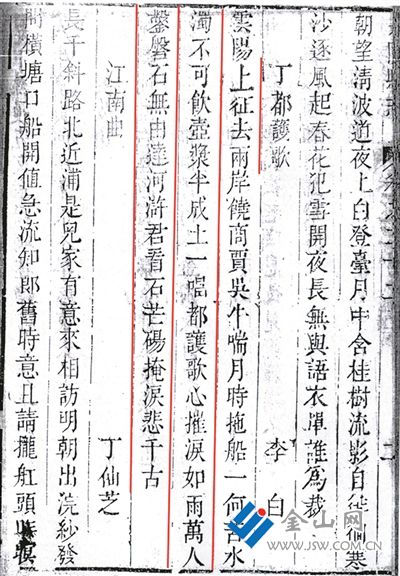 朝望清波道夜上白登臺月中含桂樹流影自徘徊寒
沙逐風起春花犯雪開夜長無與語衣單誰為裁
丁都護歌 李白
雲陽上征去兩岸饒商賈吳牛喘月時拖船一何苦水
濁不可飲壺漿半成土一唱都護歌心摧淚如雨萬人
鑿磐石無由達河滸君看石芒碭掩淚悲千古
江南曲 丁仙芝
長干斜路北近浦是兒家有意來相訪明朝出浣紗發
向橫塘口船開值急流知郎舊時意且請攏舡頭昨暝
金山网
www.JSW.com.cn